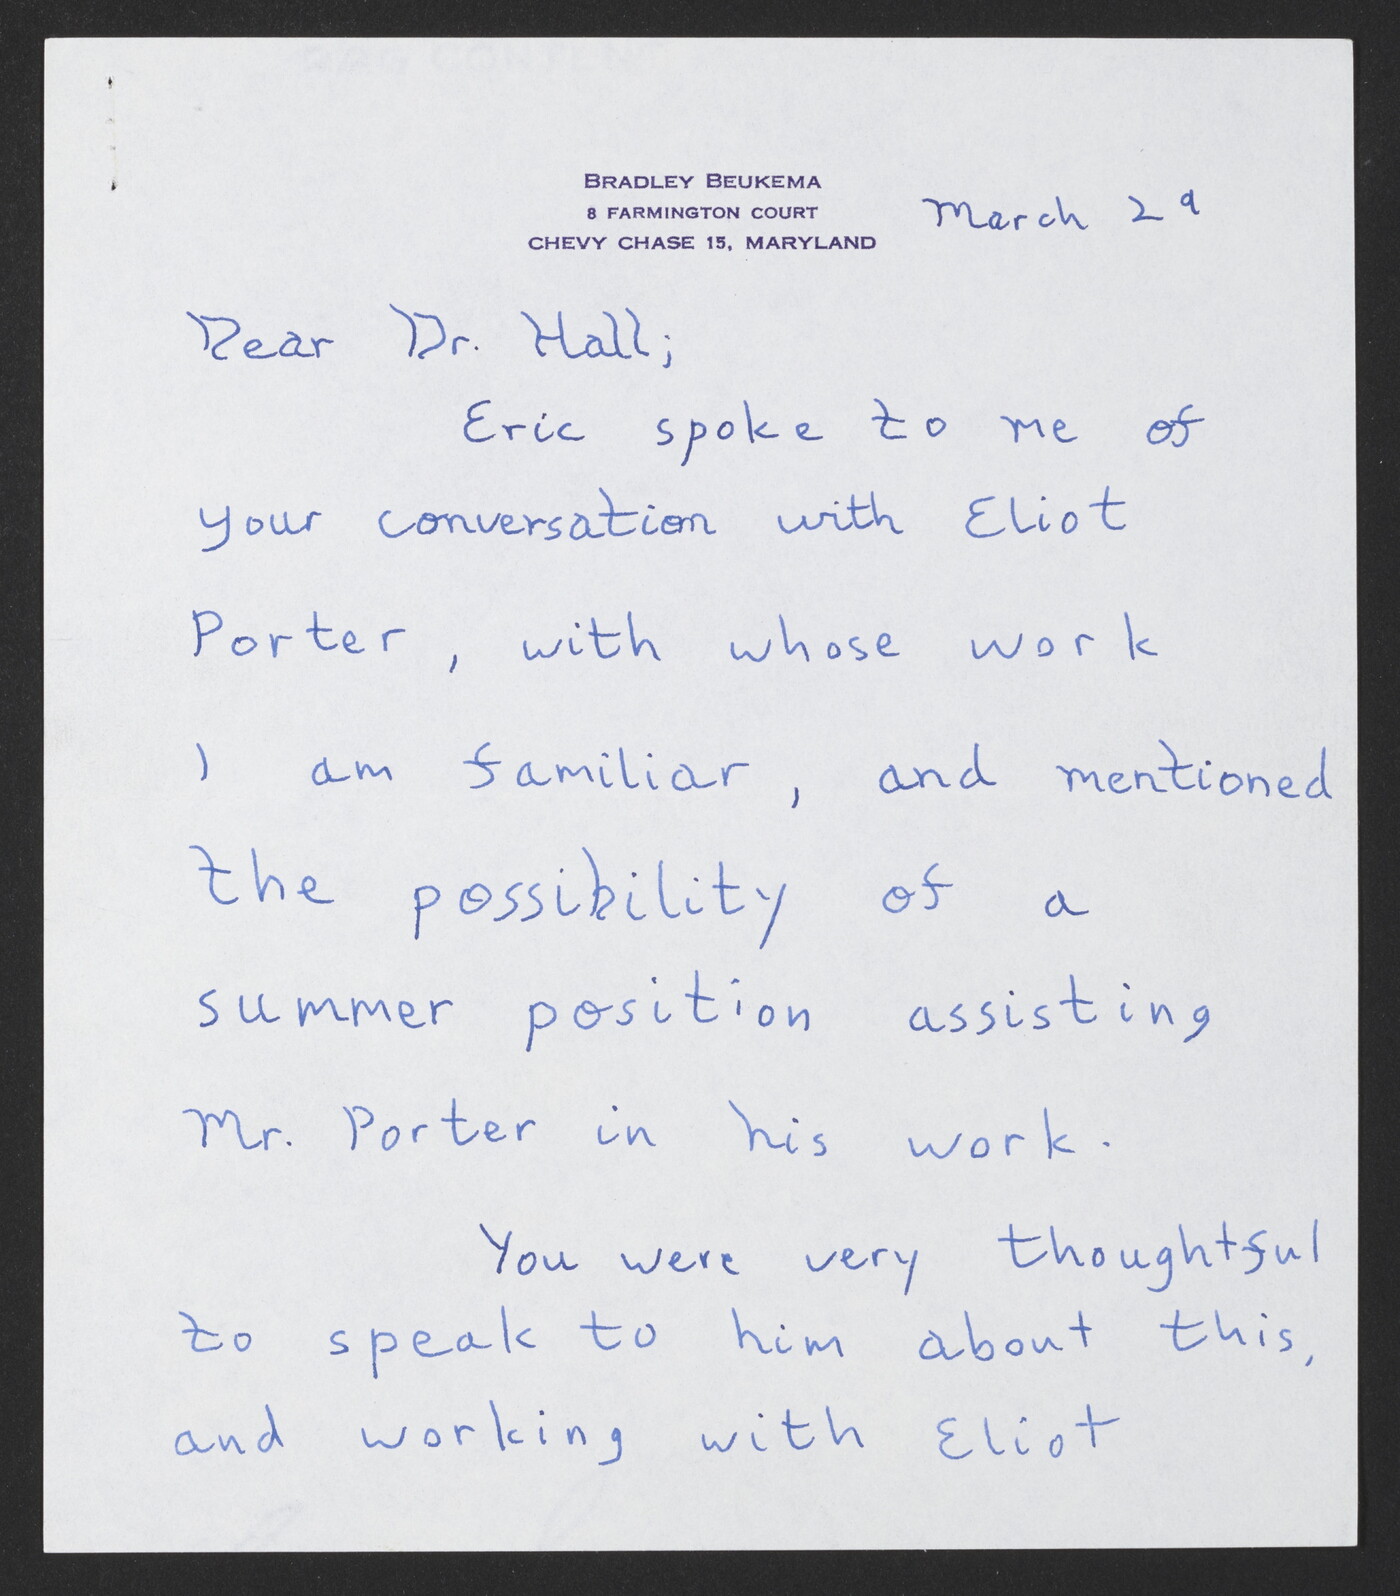 BRADLEY BEUKEMA
8 FARMINGTON COURT
CHEVY CHASE 15, MARYLAND
March 29
Dear Dr. Hall;
Eric spoke to me of
your conversation with Eliot
Porter, with whose work
I am familiar, and mentioned
the possibility of a
summer position assisting
Mr. Porter in his work.
You were very thoughtful
to speak to him about this,
and working with Eliot